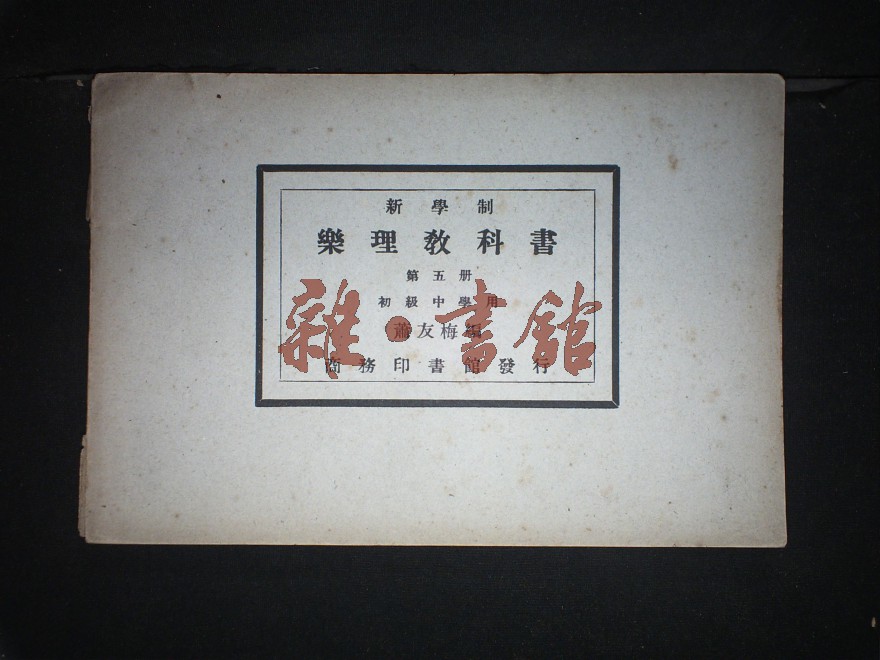 新學制
樂理教科書
第五册
初級中學用
蕭友梅編
商務印書館發行
雜·書館